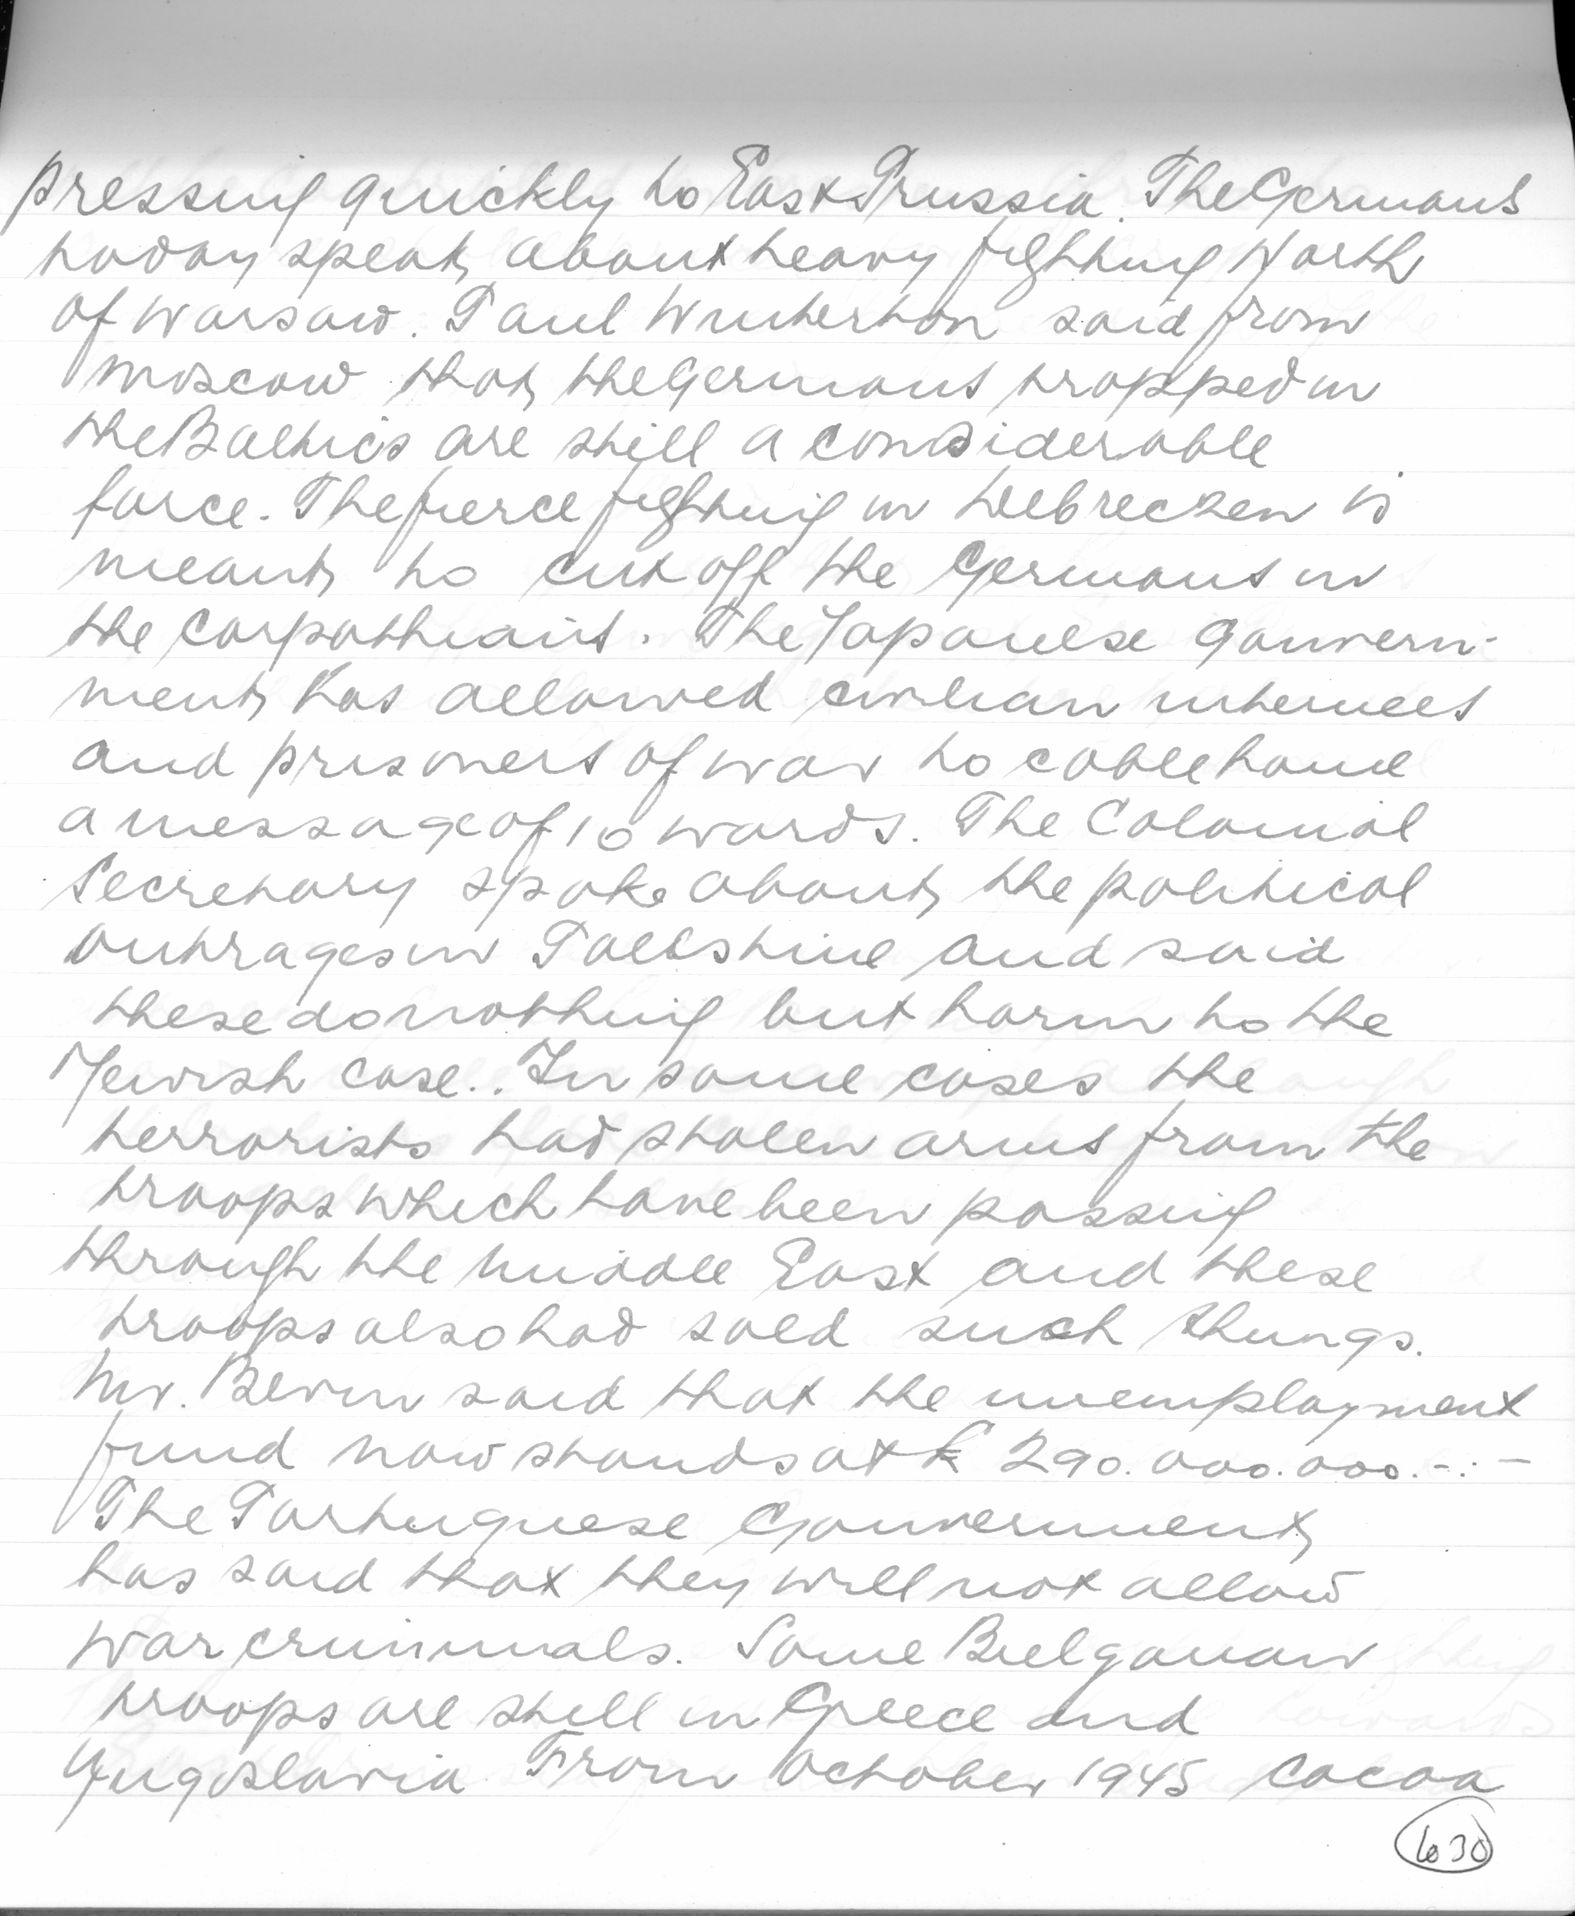 pressing quickly to East Prussia. The Germans
today speak about heavy fighting North
of Warsaw. Paul Winterton said from
Moscow that the Germans trapped in
the Baltics are still a considerable
force. The fierce fighting in Debreczen is
meant to cut off the Germans in
the Carpathians. The Japanese Gouvern-
ment has allowed civilian internees
and prisoners of war to cable home
a message of 10 words. The Colonial
Secretary spoke about the political
outrages in Palestine and said
these do nothing but harm to the
Jewish case.. In some cases the
terrorists had stolen arms from the
troops which have been passing
through the Middle East and these
troops also had sold such things.
Mr. Bevin said that the unemployment
fund now stands at £ 290.000.000.-.-
The Portuguese Gouvernment
has said that they will not allow
war criminals. Some Bulgarian
troops are still in Greece and
Yugoslavia. From October 1945 cocoa
630